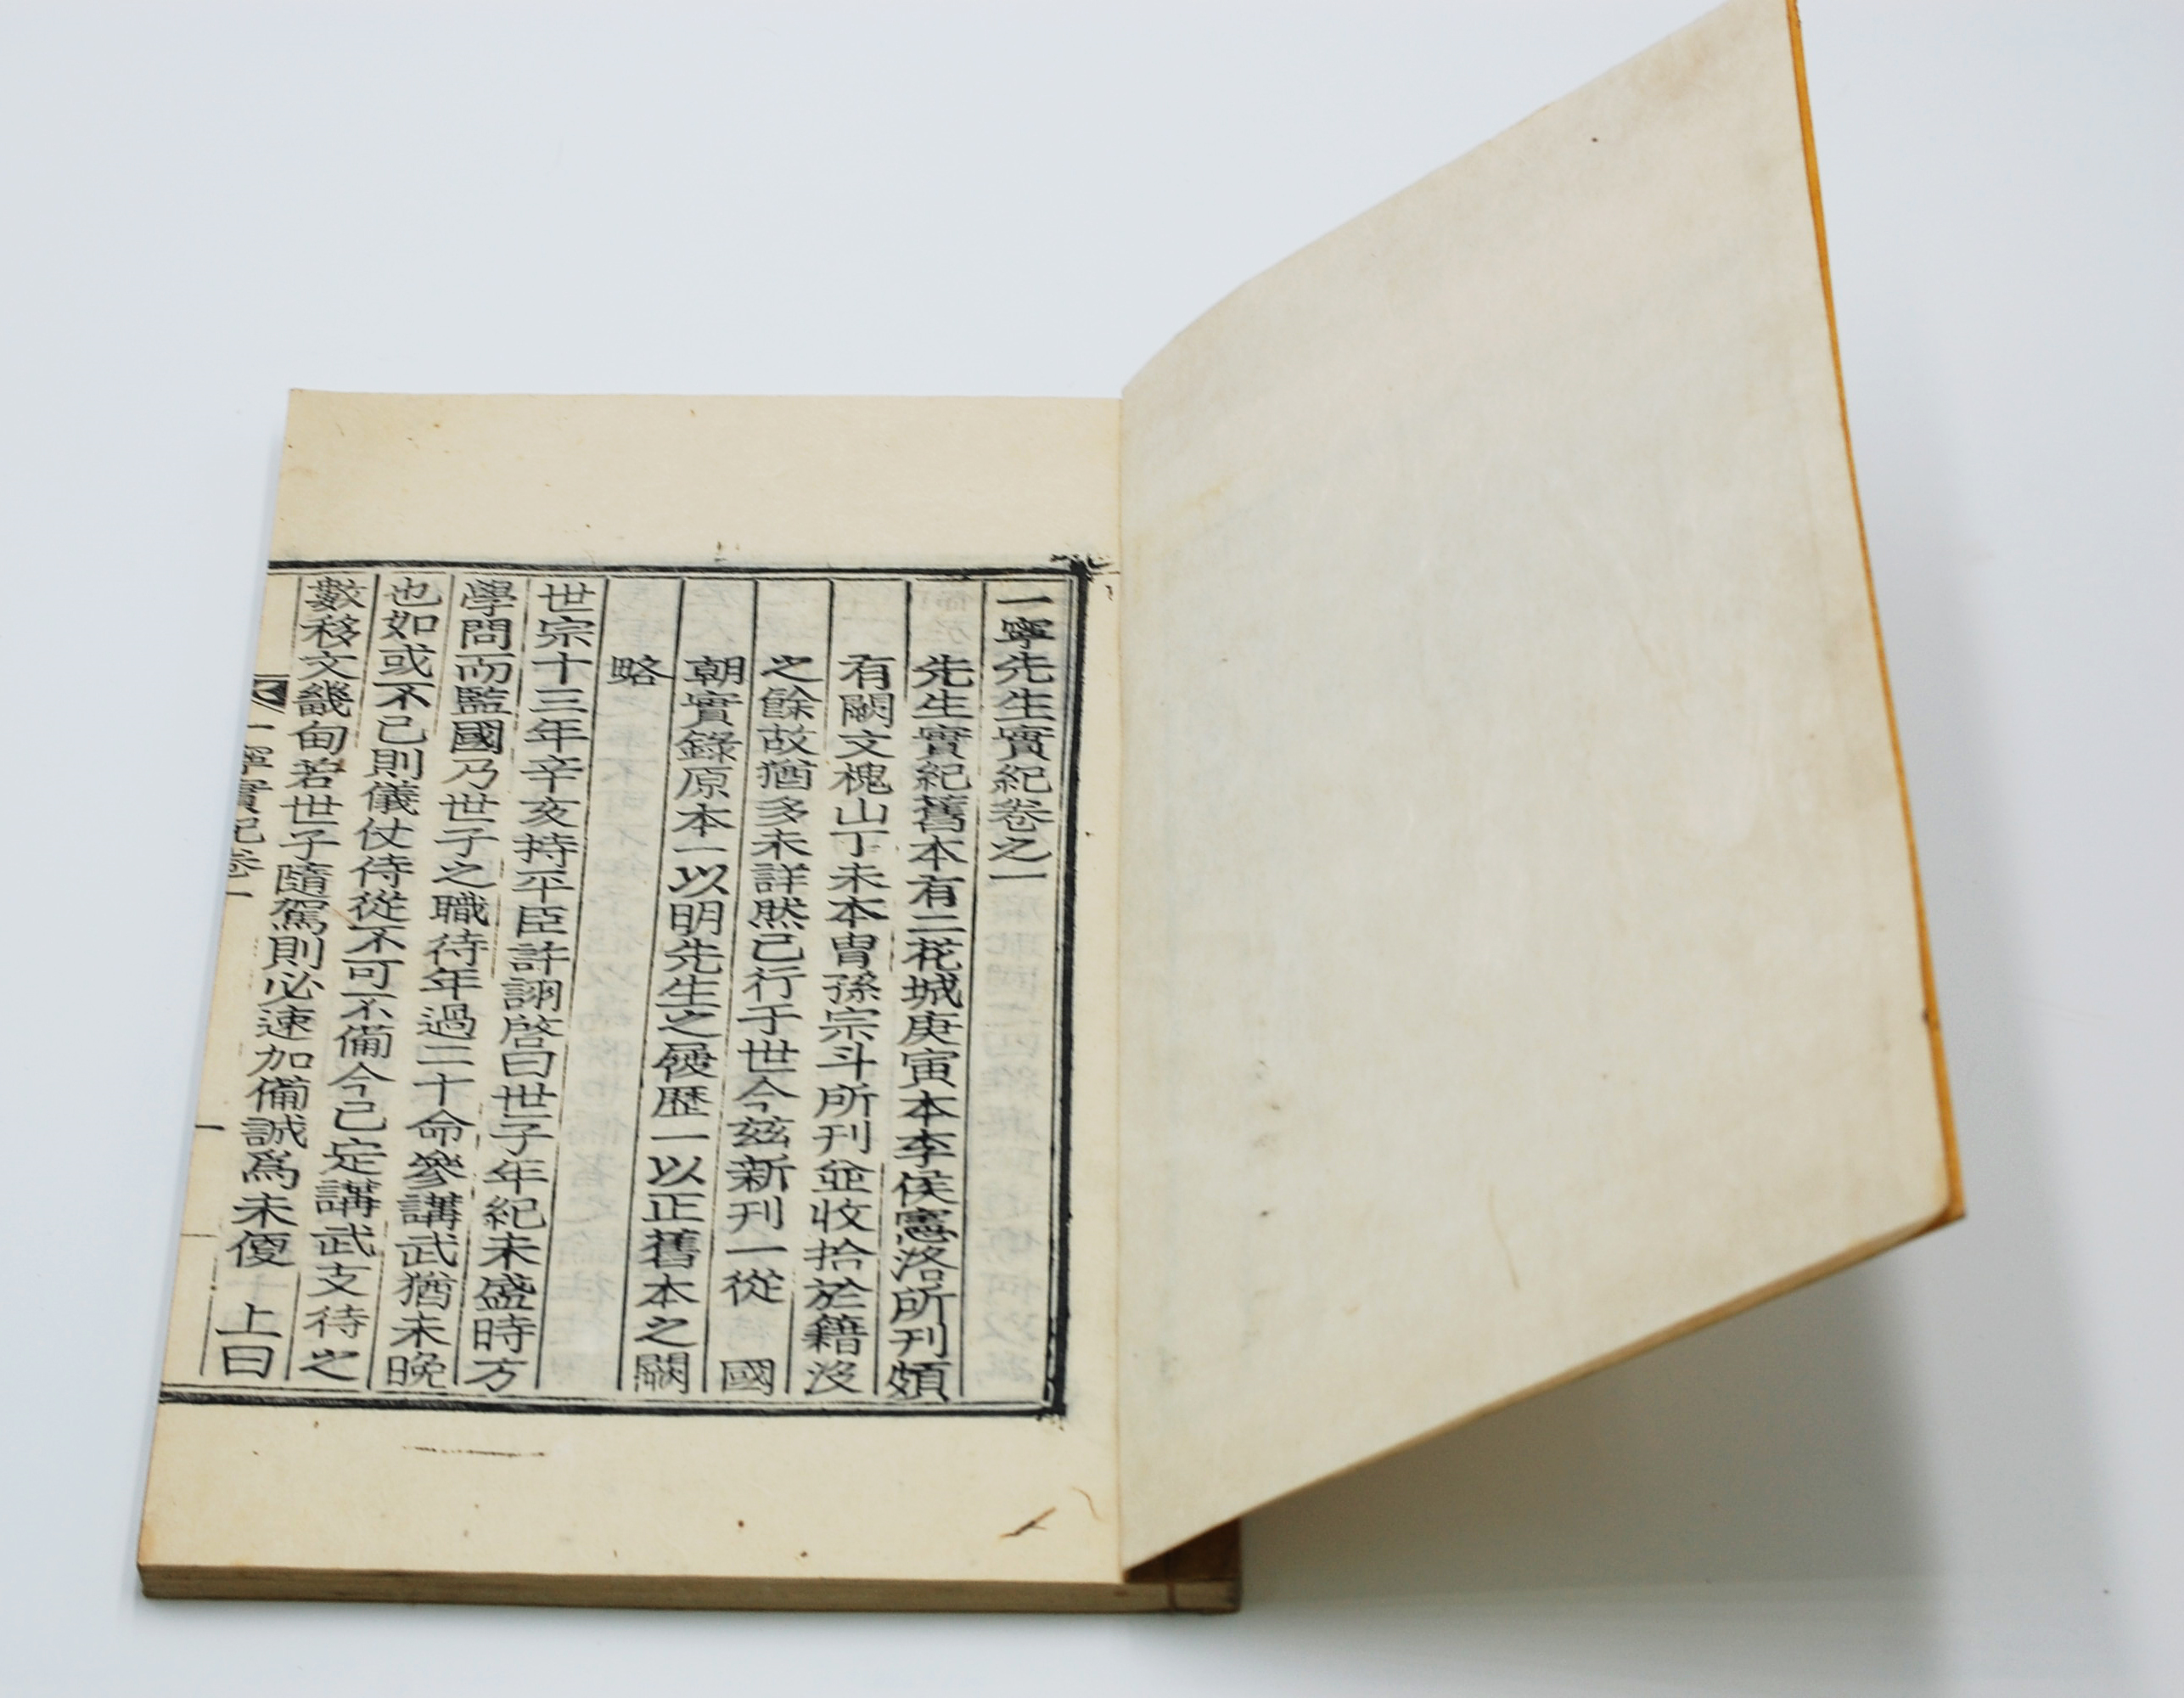 一寧先生實紀卷之一
先生實紀舊本有二花城庚寅本李侯憲洛所刊頗
有闕文槐山丁未本冑孫宗斗所刊並收拾於籍沒
之餘故猶多未詳然已行于世今茲新刊一從 國
朝實錄原本一以明先生之履歷一以正舊本之闕
略
世宗十三年辛亥持平臣許詡啓曰世子年紀未盛時方
學問而監國乃世子之職待年過二十命參講武猶未晚
也如或不已則儀仗侍從不可不備今已定講武支待之
數移文畿甸若世子隨駕則必速加備誠爲未便 上曰
一寧實紀卷一 一